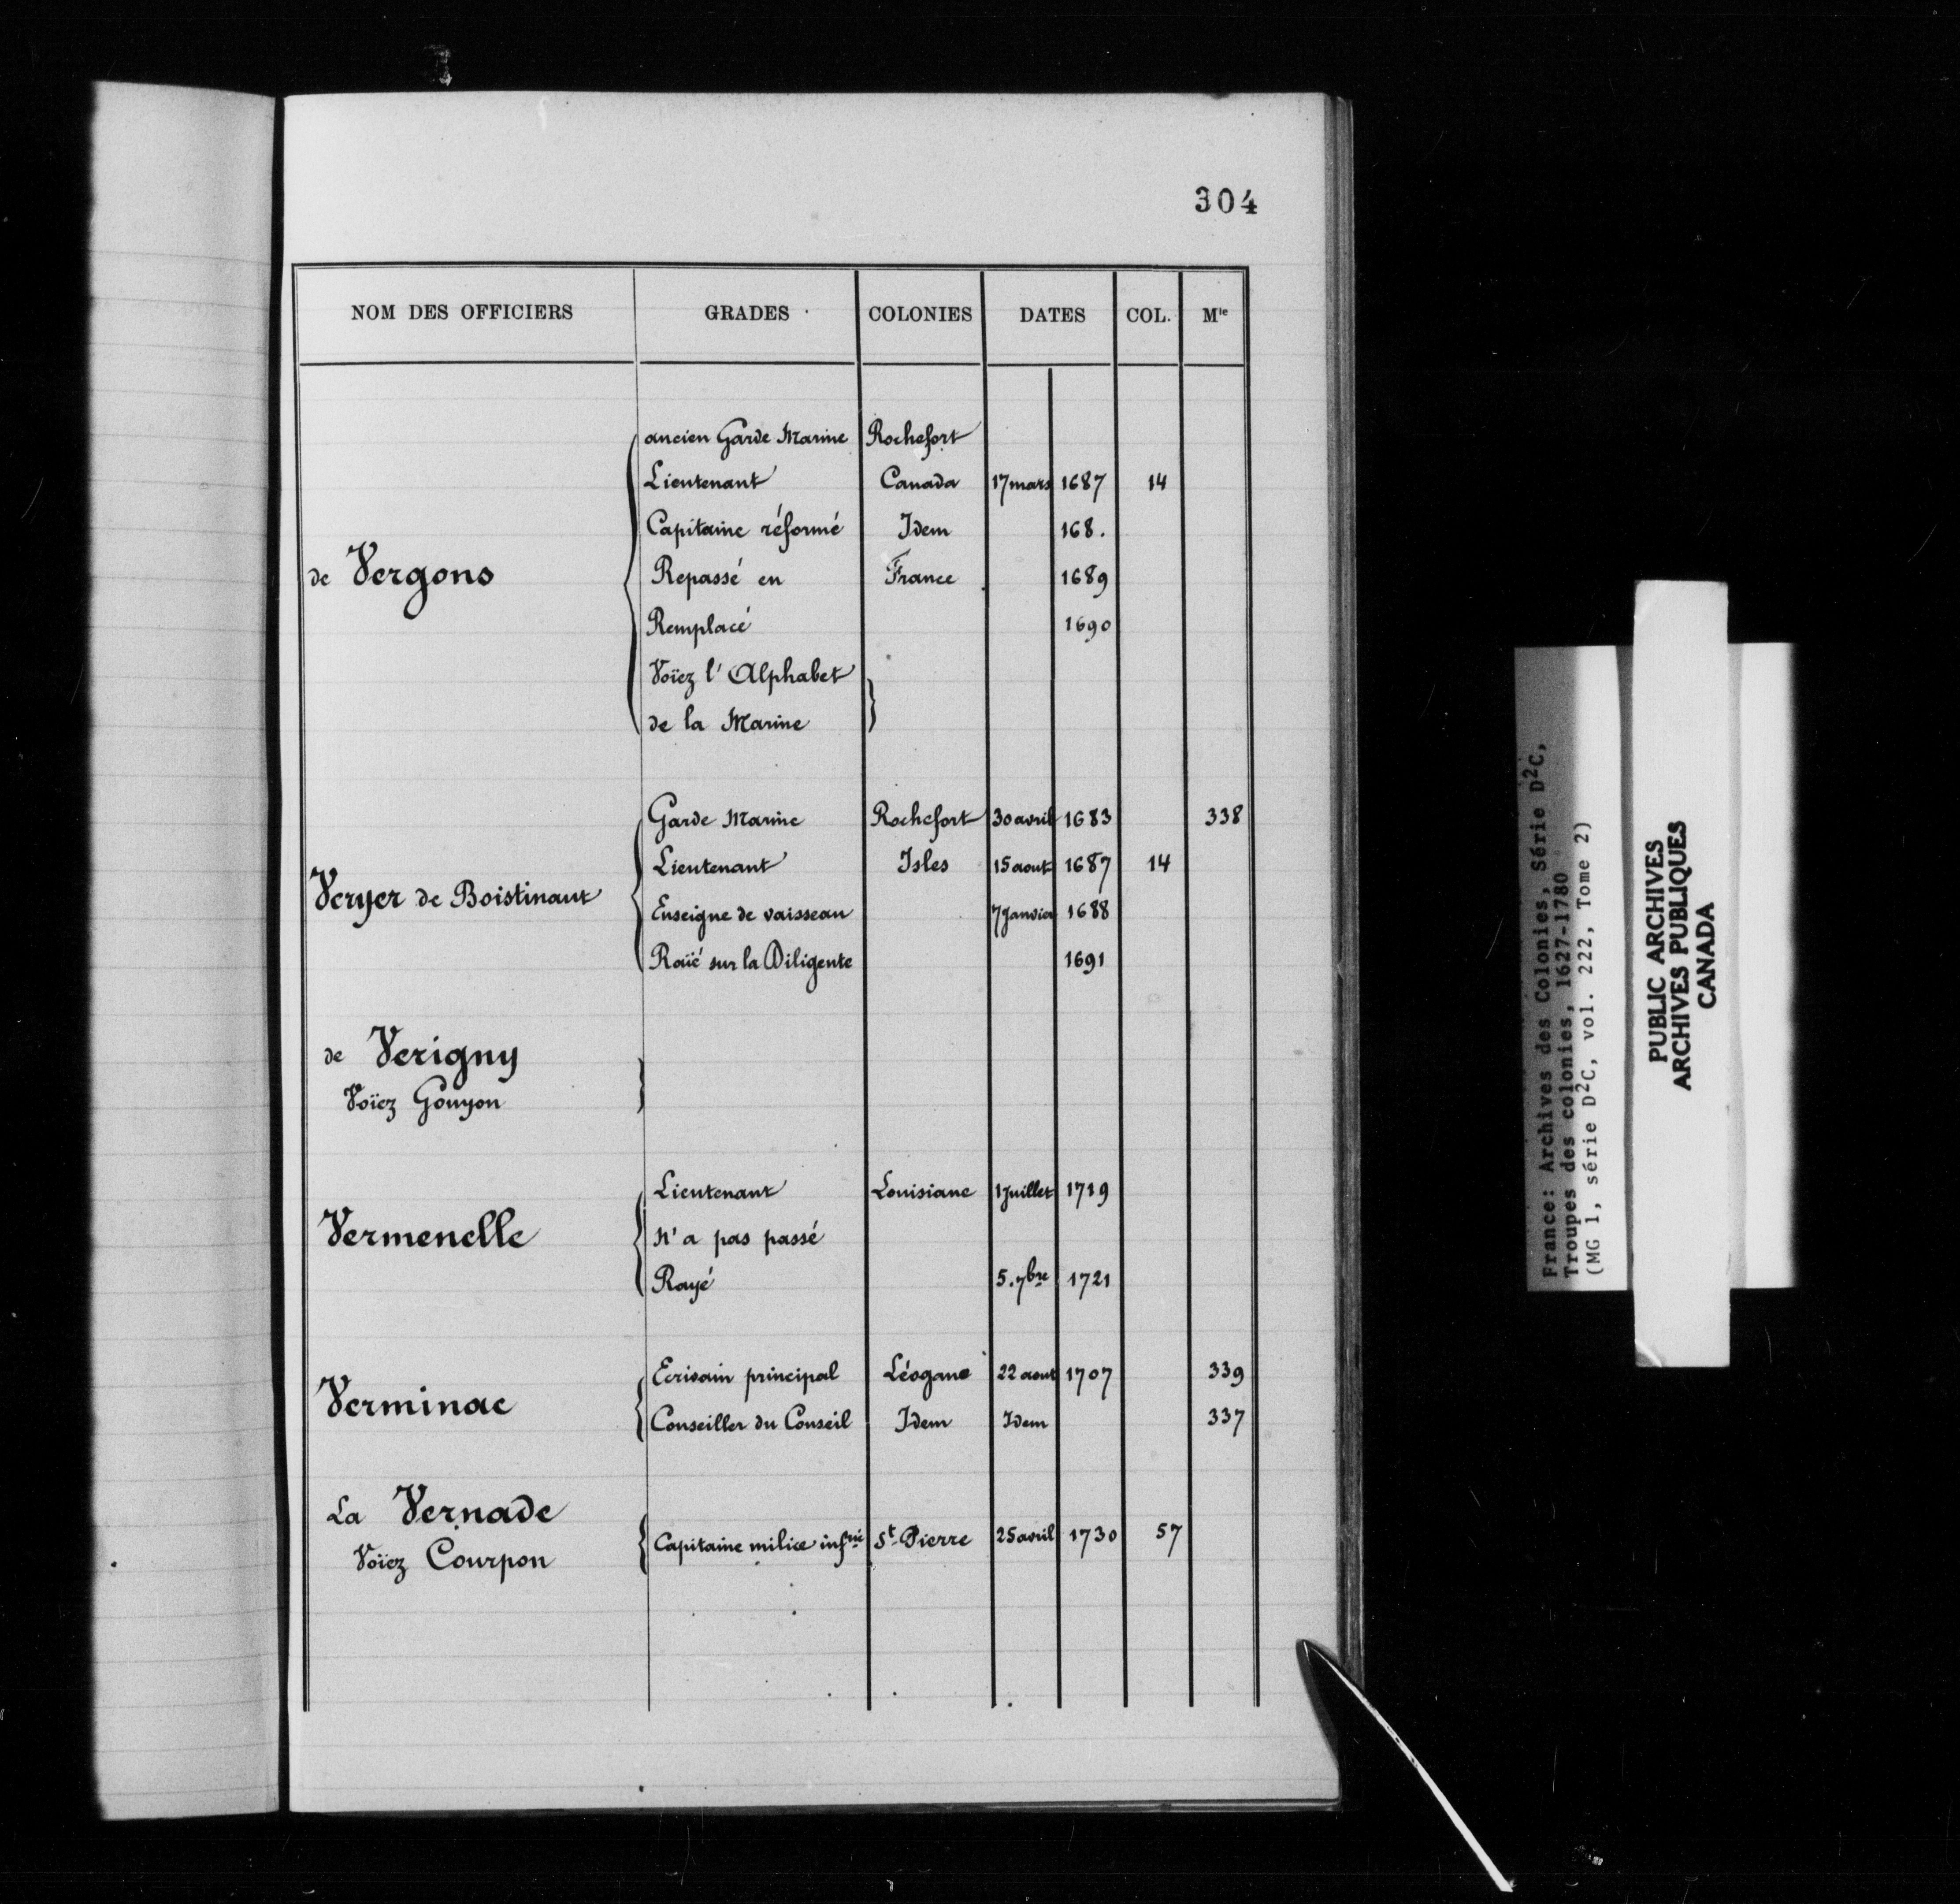 304
NOM DES OFFICIERS GRADES COLONIES DATES COL. Mle
ancien Garde Marine Rochefort
Lieutenant Canada 17 mars 1687 14
Capitaine réformé Idem 168.
de Vergons Repassé en France 1689
Remplacé 1690
Voïez l'Alphabet
de la Marine
Garde Marine Rochefort 30 avril 1683 338
Lieutenant Isles 15 aout 1687 14
Veryer de Boistinant Enseigne de vaisseau 7 Janvier 1688
Raïé sur la Diligente 1691
de Verigny
Voïez Gouyon
Lieutenant Louisiane 1 Juillet 1719
Vermenelle N'a pas passé
Rayé 5. 7bre 1721
Ecrivain principal Léogane 22 aout 1707 339
Verminac Conseiller du Conseil Idem Idem 337
La Vernade
Voïez Courpon Capitaine milice infrie St Pierre 25 avril 1730 57
France: Archives des Colonies, Série D2C,
Troupes des colonies, 1627-1780
(MG 1, série D2C, vol. 222, Tome 2)
PUBLIC ARCHIVES
ARCHIVES PUBLIQUES
CANADA